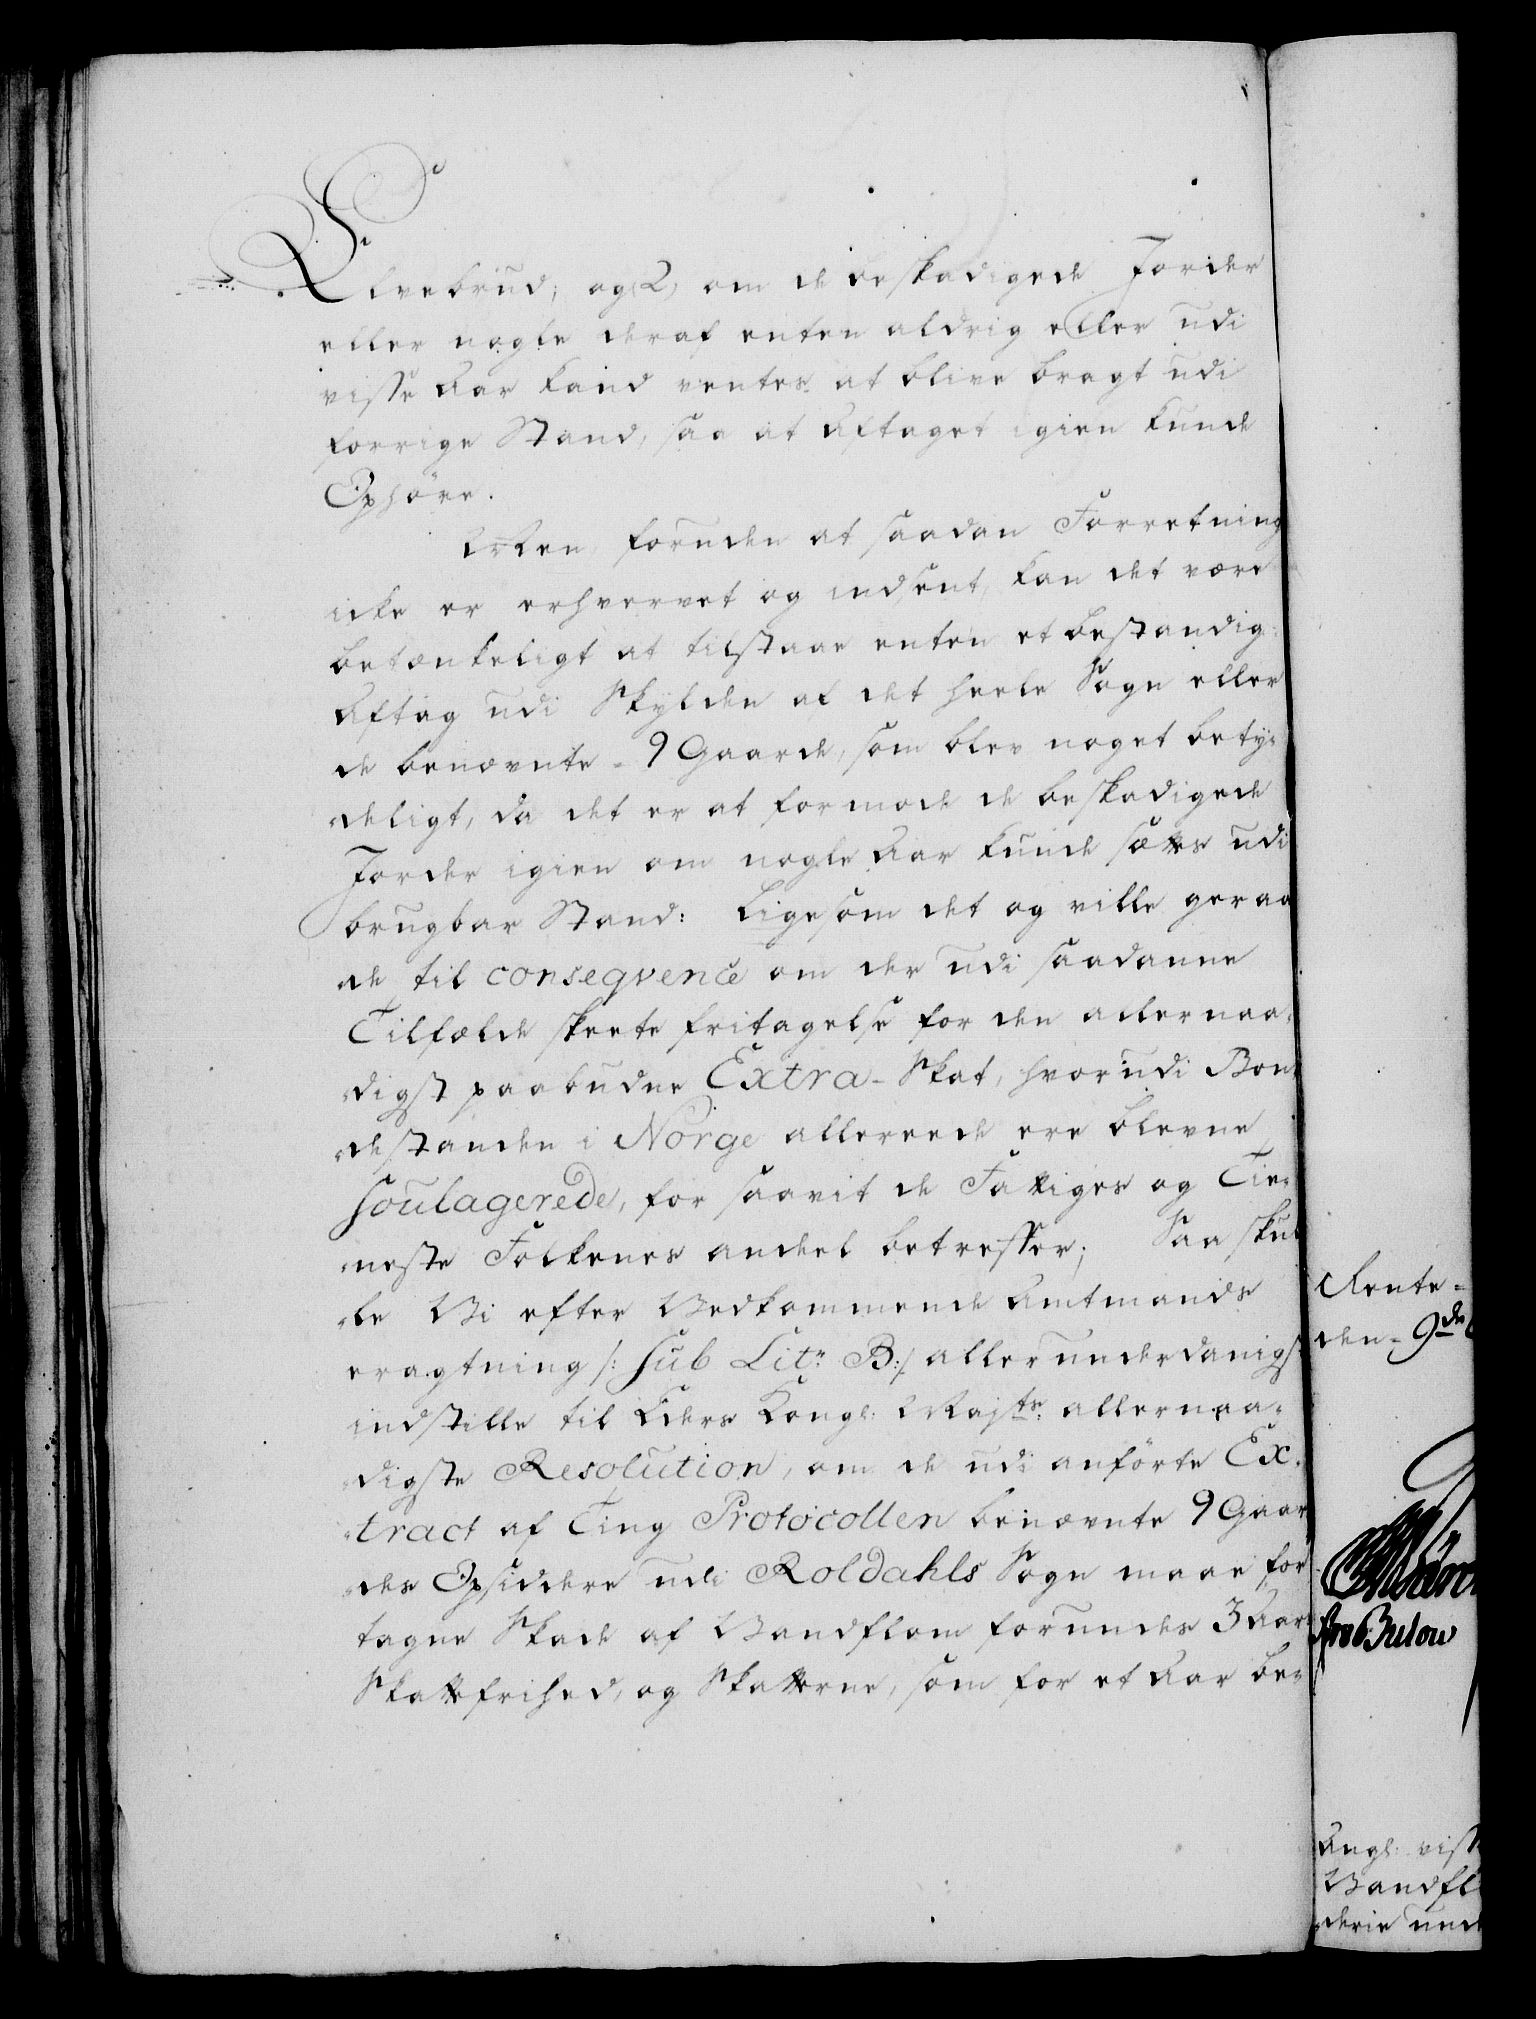 Elvebrud; og 2, om de beskadigede Jorder
eller nogle deraf enten aldrig eller udi
visse Aar kand ventes at blive bragt udi
forrige Stand, saa at Aftaget igien kunde
Ophöre.
Men foruden at saadan Forretning
icke er erhvervet og indsent, kan det være
betænkeligt at tilstaae enten et bestandig
Aftag udi Skylden af det heele Sogn eller
de benævnte 9 Gaarde, som blev noget bety-
deligt, da det er at formode de beskadigede
Jorder igien om nogle Aar kunde sættes udi
brugbar Stand: Ligesom det og ville geraa
de til conseqvence om der udi saadanne
Tilfælde skeete fritagelse for den allernaa-
digst paabudne Extra-Skat, hvorudi Bon-
destanden i Norge allereede ere blevne
soulagerede, for saavit de Fattiges og Tie-
neste Folkenes andeel betreffer; Saa skul
le Vi efter Vedkommende Amtmands
eragtning /: sub Litr B:/ allerunderdanigst
indstille til Eders Kongl: Majts allernaa-
digste Resolution, om de udi anförte Ex-
tract af Ting Protocollen benævnte 9 Gaar
des Opsiddere udi Roldahls Sogn maae for
tagne Skade af Vandflom forundes 3 Aars
Skattefrihed, og Skatterne, som for et Aar be-
Rente-
den 9de
Bulow
Angl: vist
Vandfl
derie und